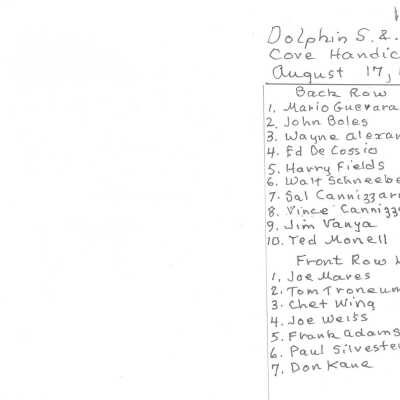 Dolphin S. &.
Cove Handic
August 17,
Back Row
1. Mario Guevara
2. John Boles
3. Wayne Alexan
4. Ed De Cossio
5. Harry Fields
6. Walt Schneebe
7. Sal Cannizzar
8. Vince Cannizz
9. Jim Vanya
10. Ted Monell
Front Row
1, Joe Mares
2. Tom Troneum
3. Chet Wing
4. Joe Weiss
5. Frank Adams
6. Paul Silveste
7, Don Kane